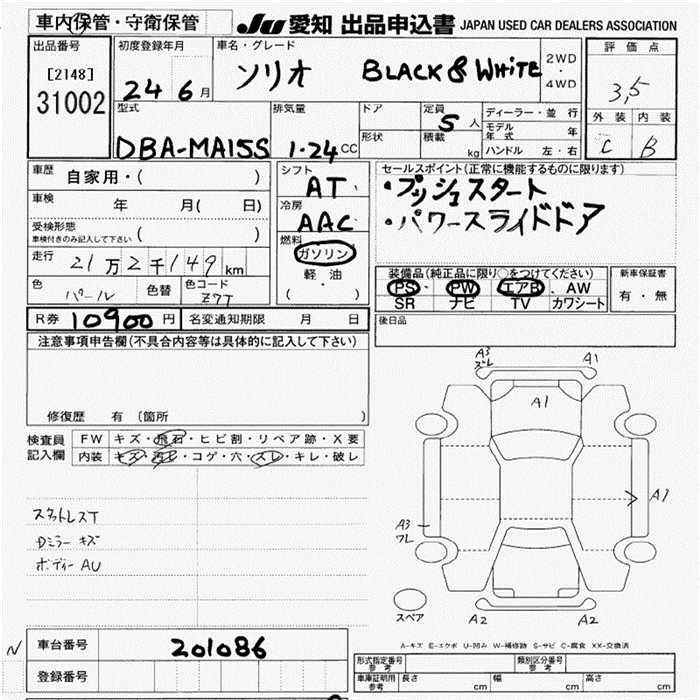 車内保管・守衛保管 JU 愛知 出品申込書 JAPAN USED CAR DEALERS ASSOCIATION
出品番号
[2148]
31002
初度登録年月
24 6 月
車名・グレード
ソリオ BLACK & WHITE
2WD
・
4WD
評価点
3,5
外装 内装
C B
型式
DBA-MA15S
排気量
1.24 CC
ドア
形状
定員
5 人
積載
kg
ディーラー・並行
モデル年式 年
ハンドル 左・右
車歴 自家用・( )
車検 年 月( 日)
受検形態
車検付きのみ記入して下さい ( )
走行 21万2千149 km
色 パール 色替 色コード Z7T
シフト
AT
冷房
AAC
燃料
ガソリン
軽・油
( ・ )
セールスポイント(正常に機能するものに限ります)
・プッシュスタート
・パワースライドドア
装備品(純正品に限り○をつけてください)
PS・ PW エアB、AW
SR ナビ TV カワシート
新車保証書
有・無
後日品
R券 10900 円 名変通知期限 月 日
注意事項申告欄(不具合内容等は具体的に記入して下さい)
修復歴 有 〔箇所 〕
検査員
記入欄
FW キズ・飛石・ヒビ割・リペア跡・X要
内装 キズ・汚レ・コゲ・穴・スレ・キレ・破レ
スタットレスT
Dミラー キズ
ボディー AU
A3
ズレ
A1
A1
A1
A3
ワレ
スペア
A2 A2
A-キズ E-エクボ U-凹み W-補修跡 S-サビ C-腐食 XX-交換済
N
車台番号 201086
登録番号
形式指定番号
参考
類別区分番号
参考
車庫証明用
参考
長さ cm 幅 cm 高さ cm